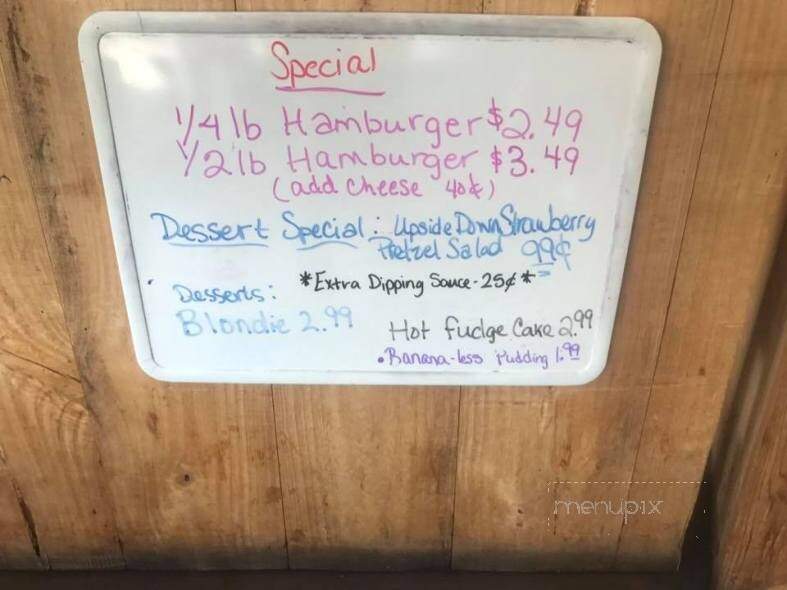 Special
1/4 lb Hamburger $2.49
1/2 lb Hamburger $3.49
(add cheese 40¢)
Dessert Special: Upside Down Strawberry
Pretzel Salad 99¢
*Extra Dipping Sauce - 25¢*
Desserts:
Blondie 2.99
Hot fudge Cake 2.99
•Banana-less Pudding 1.99
menupix